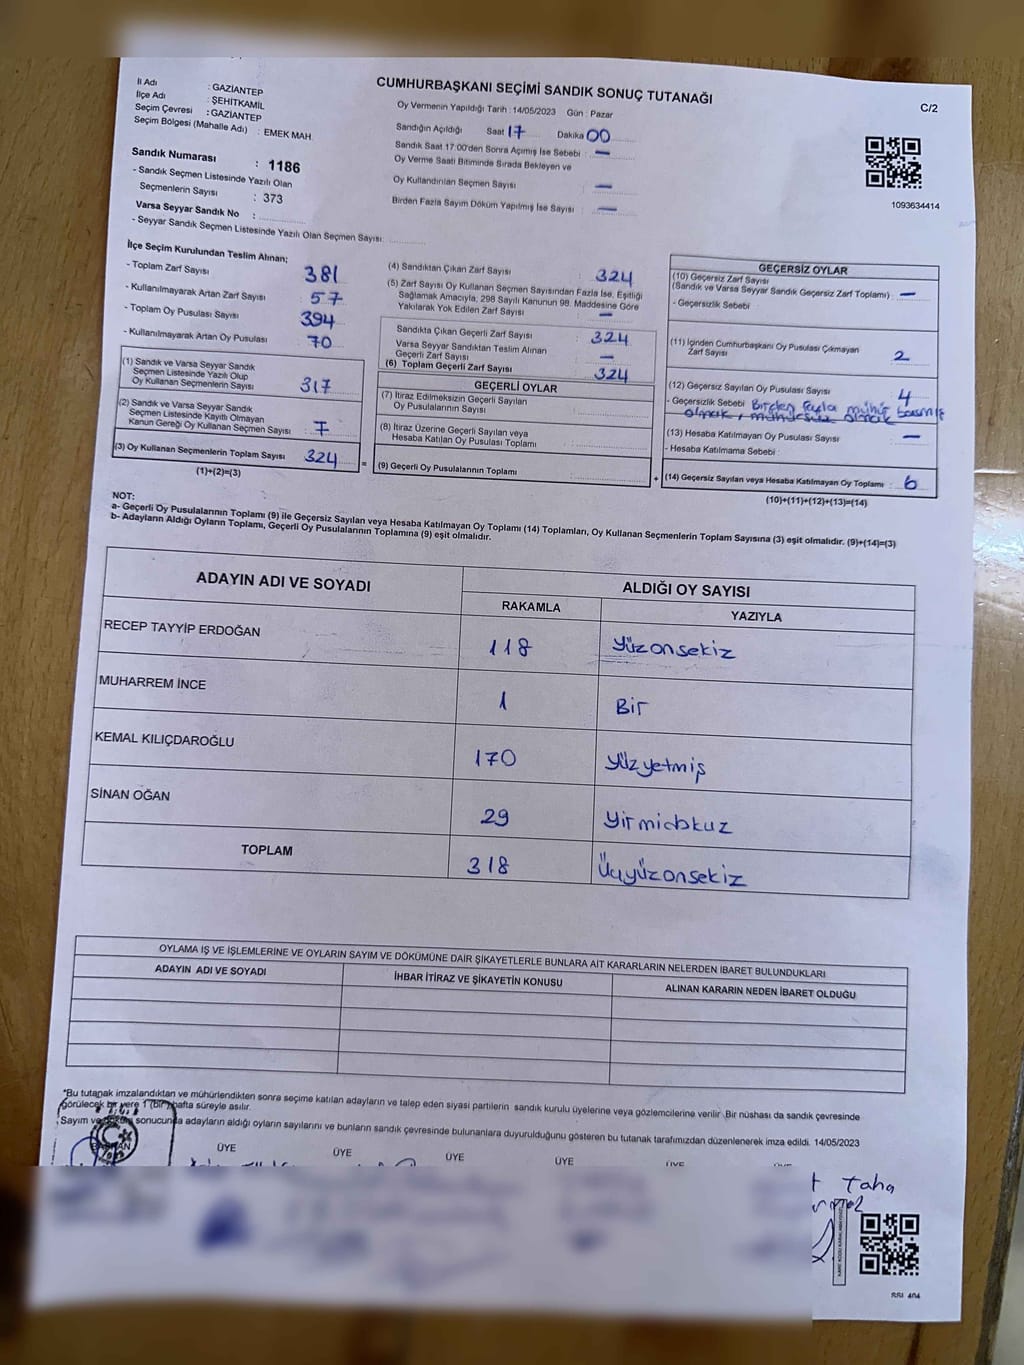 CUMHURBAŞKANI SEÇİMİ SANDIK SONUÇ TUTANAĞI
C/2
İl Adı : GAZİANTEP
İlçe Adı : ŞEHİTKAMİL
Seçim Çevresi : GAZİANTEP
Seçim Bölgesi (Mahalle Adı) : EMEK MAH.
Sandık Numarası : 1186
- Sandık Seçmen Listesinde Yazılı Olan
Seçmenlerin Sayısı : 373
Varsa Seyyar Sandık No :
- Seyyar Sandık Seçmen Listesinde Yazılı Olan Seçmen Sayısı:
Oy Vermenin Yapıldığı Tarih : 14/05/2023 Gün : Pazar
Sandığın Açıldığı Saat 17 Dakika 00
Sandık Saat 17:00'den Sonra Açımış İse Sebebi : —
Oy Verme Saati Bitiminde Sırada Bekleyen ve
Oy Kullandırılan Seçmen Sayısı —
Birden Fazla Sayım Döküm Yapılmış İse Sayısı : —
1093634414
İlçe Seçim Kurulundan Teslim Alınan;
- Toplam Zarf Sayısı 381
- Kullanılmayarak Artan Zarf Sayısı 57
- Toplam Oy Pusulası Sayısı 394
- Kullanılmayarak Artan Oy Pusulası 70
(1) Sandık ve Varsa Seyyar Sandık
Seçmen Listesinde Yazılı Olup
Oy Kullanan Seçmenlerin Sayısı 317
(2) Sandık ve Varsa Seyyar Sandık
Seçmen Listesinde Kayıtlı Olmayan
Kanun Gereği Oy Kullanan Seçmen Sayısı : 7
(3) Oy Kullanan Seçmenlerin Toplam Sayısı 324 =
(1)+(2)=(3)
(4) Sandıktan Çıkan Zarf Sayısı : 324
(5) Zarf Sayısı Oy Kullanan Seçmen Sayısından Fazla İse, Eşitliği
Sağlamak Amacıyla, 298 Sayılı Kanunun 98. Maddesine Göre
Yakılarak Yok Edilen Zarf Sayısı : —
Sandıkta Çıkan Geçerli Zarf Sayısı : 324
Varsa Seyyar Sandıktan Teslim Alınan
Geçerli Zarf Sayısı : —
(6) Toplam Geçerli Zarf Sayısı : 324
GEÇERLİ OYLAR
(7) İtiraz Edilmeksizin Geçerli Sayılan
Oy Pusulalarının Sayısı :
(8) İtiraz Üzerine Geçerli Sayılan veya
Hesaba Katılan Oy Pusulası Toplamı :
(9) Geçerli Oy Pusulalarının Toplamı : +
GEÇERSİZ OYLAR
(10) Geçersiz Zarf Sayısı
(Sandık ve Varsa Seyyar Sandık Geçersiz Zarf Toplamı) : —
- Geçersizlik Sebebi
(11) İçinden Cumhurbaşkanı Oy Pusulası Çıkmayan
Zarf Sayısı 2
(12) Geçersiz Sayılan Oy Pusulası Sayısı 4
- Geçersizlik Sebebi Birden fazla mühür basımış
olmak, mühürsüz olmak
(13) Hesaba Katılmayan Oy Pusulası Sayısı : —
- Hesaba Katılmama Sebebi :
(14) Geçersiz Sayılan veya Hesaba Katılmayan Oy Toplamı : 6
(10)+(11)+(12)+(13)=(14)
NOT:
a- Geçerli Oy Pusulalarının Toplamı (9) ile Geçersiz Sayılan veya Hesaba Katılmayan Oy Toplamı (14) Toplamları, Oy Kullanan Seçmenlerin Toplam Sayısına (3) eşit olmalıdır. (9)+(14)=(3)
b- Adayların Aldığı Oyların Toplamı, Geçerli Oy Pusulalarının Toplamına (9) eşit olmalıdır.
ADAYIN ADI VE SOYADI ALDIĞI OY SAYISI
RAKAMLA YAZIYLA
RECEP TAYYİP ERDOĞAN 118 Yüzonsekiz
MUHARREM İNCE 1 Bir
KEMAL KILIÇDAROĞLU 170 Yüzyetmiş
SİNAN OĞAN 29 Yirmidokuz
TOPLAM 318 Üçyüzonsekiz
OYLAMA İŞ VE İŞLEMLERİNE VE OYLARIN SAYIM VE DÖKÜMÜNE DAİR ŞİKAYETLERLE BUNLARA AİT KARARLARIN NELERDEN İBARET BULUNDUKLARI
ADAYIN ADI VE SOYADI İHBAR İTİRAZ VE ŞİKAYETİN KONUSU ALINAN KARARIN NEDEN İBARET OLDUĞU
*Bu tutanak imzalandıktan ve mühürlendikten sonra seçime katılan adayların ve talep eden siyasi partilerin sandık kurulu üyelerine veya gözlemcilerine verilir. Bir nüshası da sandık çevresinde
görülecek bir yere 1 (bir) hafta süreyle asılır.
Sayım ve sonucunda adayların aldığı oyların sayılarını ve bunların sandık çevresinde bulunanlara duyurulduğunu gösteren bu tutanak tarafımızdan düzenlenerek imza edildi. 14/05/2023
BAŞKAN ÜYE ÜYE ÜYE ÜYE ÜYE
Taha